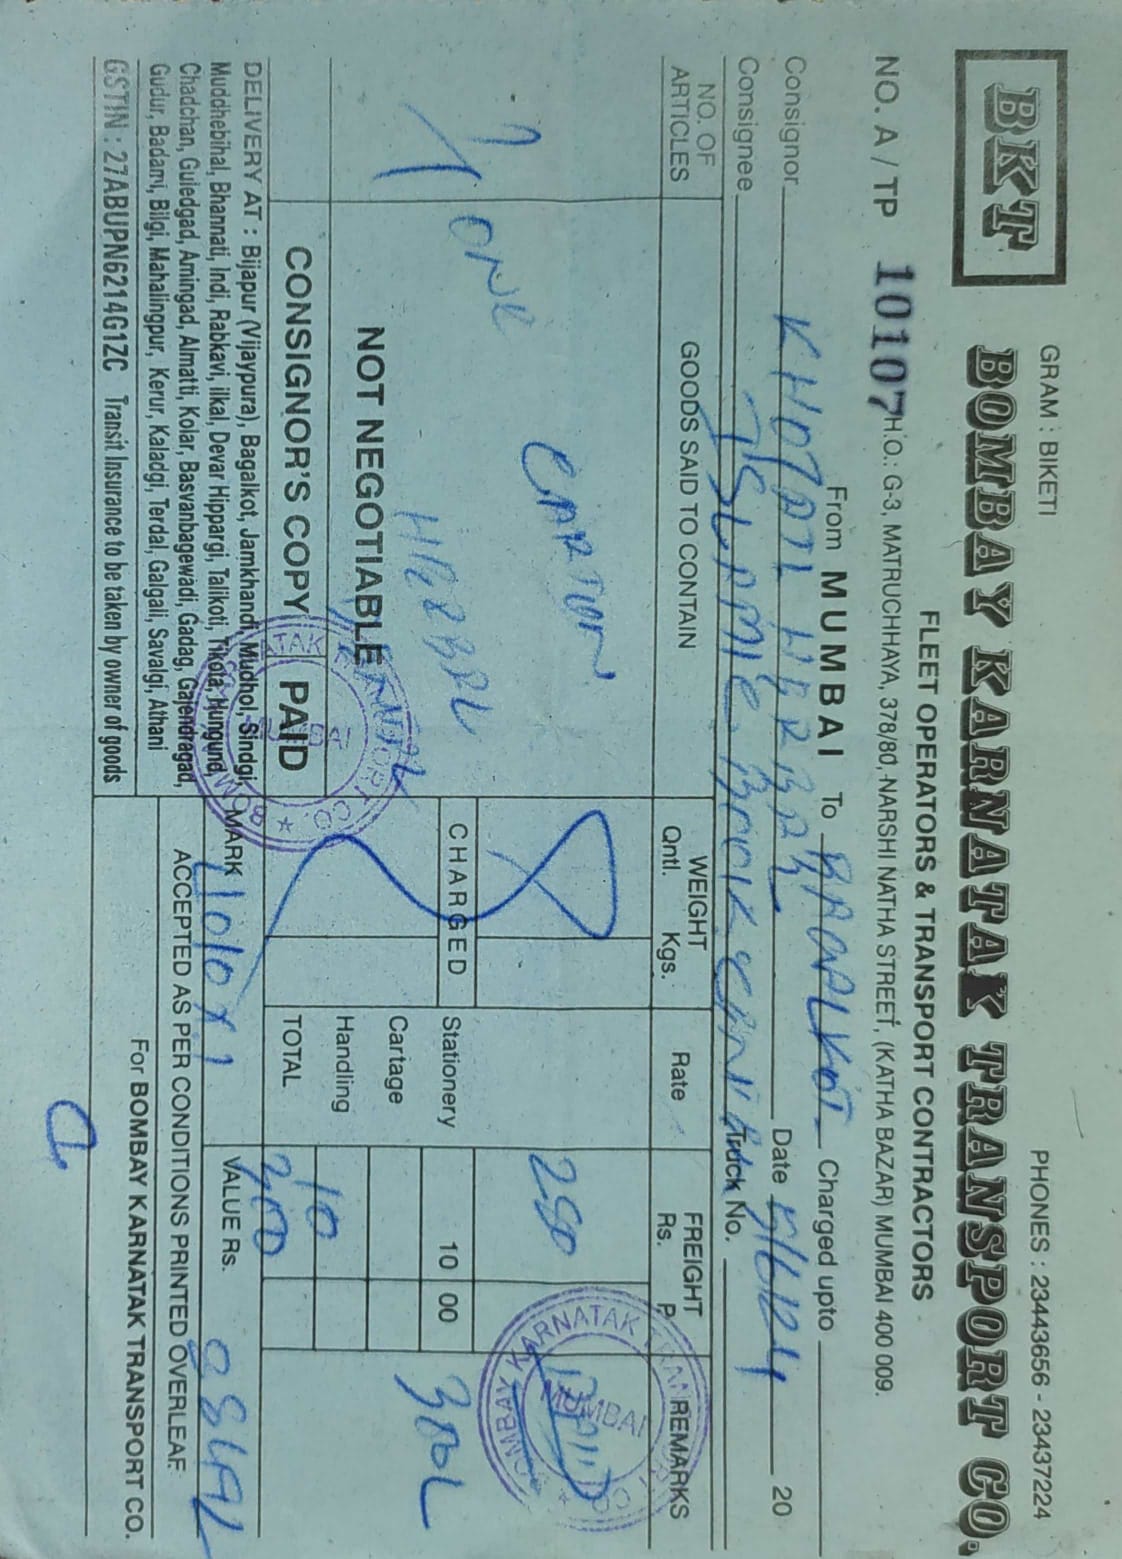 GRAM : BIKETI
PHONES : 23443656 - 23437224
BKT
BOMBAY KARNATAK TRANSPORT CO.
FLEET OPERATORS & TRANSPORT CONTRACTORS
H.O.: G-3, MATRUCHHAYA, 378/80, NARSHI NATHA STREET, (KATHA BAZAR) MUMBAI 400 009.
NO. A / TP 10107
From MUMBAI To BAGALKOT Charged upto
Consignor Date 20
Consignee Truck No.
NO. OF ARTICLES
GOODS SAID TO CONTAIN
WEIGHT
Qntl. Kgs.
Rate
FREIGHT
Rs. P.
REMARKS
1
ONE CARTION
280
PAID
CHARGED
Stationery 10 00
Cartage
Handling 10
TOTAL 300
NOT NEGOTIABLE
CONSIGNOR'S COPY
PAID
DELIVERY AT : Bijapur (Vijaypura), Bagalkot, Jamkhandi, Mudhol, Sindgi,
Muddhebihal, Bhannati, Indi, Rabkavi, ilkal, Devar Hippargi, Talikoti, Tikota, Hungund,
Chadchan, Guledgad, Amingad, Almatti, Kolar, Basvanbagewadi, Gadag, Gajendragad,
Gudur, Badami, Bilgi, Mahalingpur, Kerur, Kaladgi, Terdal, Galgali, Savalgi, Athani
GSTIN : 27ABUPN6214G1ZC Transit Insurance to be taken by owner of goods
MARK
VALUE Rs.
ACCEPTED AS PER CONDITIONS PRINTED OVERLEAF.
For BOMBAY KARNATAK TRANSPORT CO.